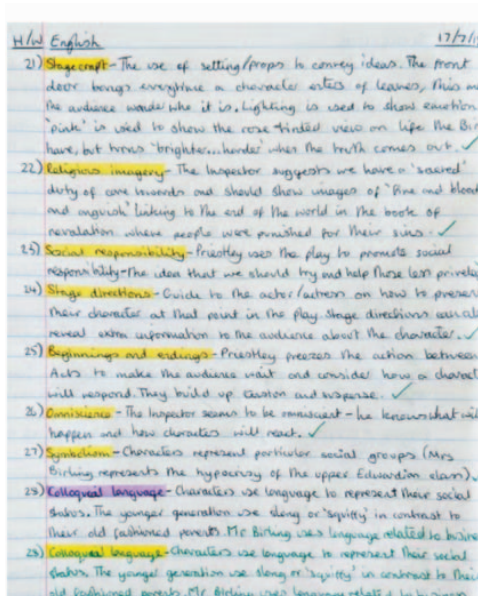 H/W English 17/7/1
21) Stagecraft - The use of setting/props to convey ideas. The front
door bangs everytime a character enters of leaves, this
the audience wonder who it is. Lighting is used to show emotion
'pink' is used to show the rose tinted view on life the Bir
have, but turns 'brighter...harder' when the truth comes out.
22) Religious imagery - The Inspector suggests we have a 'sacred'
duty of care towards and should show images of "fire and blood
and anguish" linking to the end of the world in the book of
revalation where people were punished for their sins.
23) Social responsibility - Priestley uses the play to promote social
responsibility - the idea that we should try and help those less privele
24) Stage directions - Guide to the actor/actress on how to presen
their character at that point in the play. Stage directions can al
reveal extra information to the audience about the character.
25) Beginnings and endings - Priestley freezes the action between
Acts to make the audience wait and consider how a charact
will respond. They build up tension and suspense.
26) Omniscience - The Inspector seems to be omniscient - he knows what will
happen and how characters will react.
27) Symbolism - Characters represent particular social groups (Mrs
Birling represents the hypocrisy of the upper Edwardian class)
28) Colloqueal language - Characters use language to represent their social
status. The younger generation use slang or 'squiffy' in contrast to
their old fashioned parents. Mr Birling uses language related to busine
28) Colloqueal language - Characters use language to represent their social
status. The younger generation use slang or 'squiffy' in contrast to their
old fashioned parents. Mr Birling uses language related to business